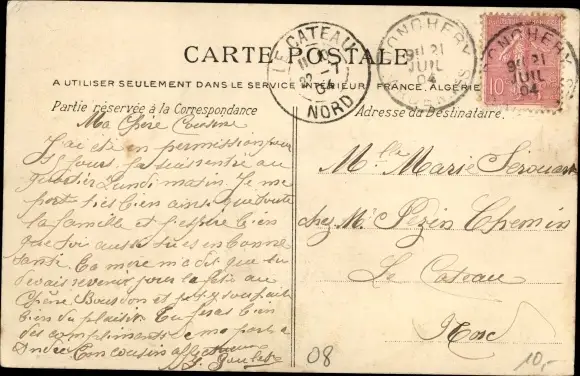 CARTE POSTALE
A UTILISER SEULEMENT DANS LE SERVICE INTERIEUR, FRANCE, ALGÉRIE
Partie réservée à la Correspondance
Adresse du Destinataire.
LE CATEAU
22 - 7
04
NORD
DONCHERY
9H 21
JUIL
04
DONCHERY
9H 21
JUIL
04
10
Ma Chère Cousine
J'ai été en permission pour
jours je suis rentré au
quartier Lundi matin. Je me
porte très bien ainsi que toute
la famille et j'espère bien
que toi aussi tu es en bonne
santé. Ta mère m'a dit que tu
devais revenir pour la fête au
Chêne Bourdon et
bien du plaisir. Tu feras bien
des compliments de ma part a
André Ton cousin
Mlle Marie
chez Mr Pezin Chemin
Le Cateau
Nord
08
10,-